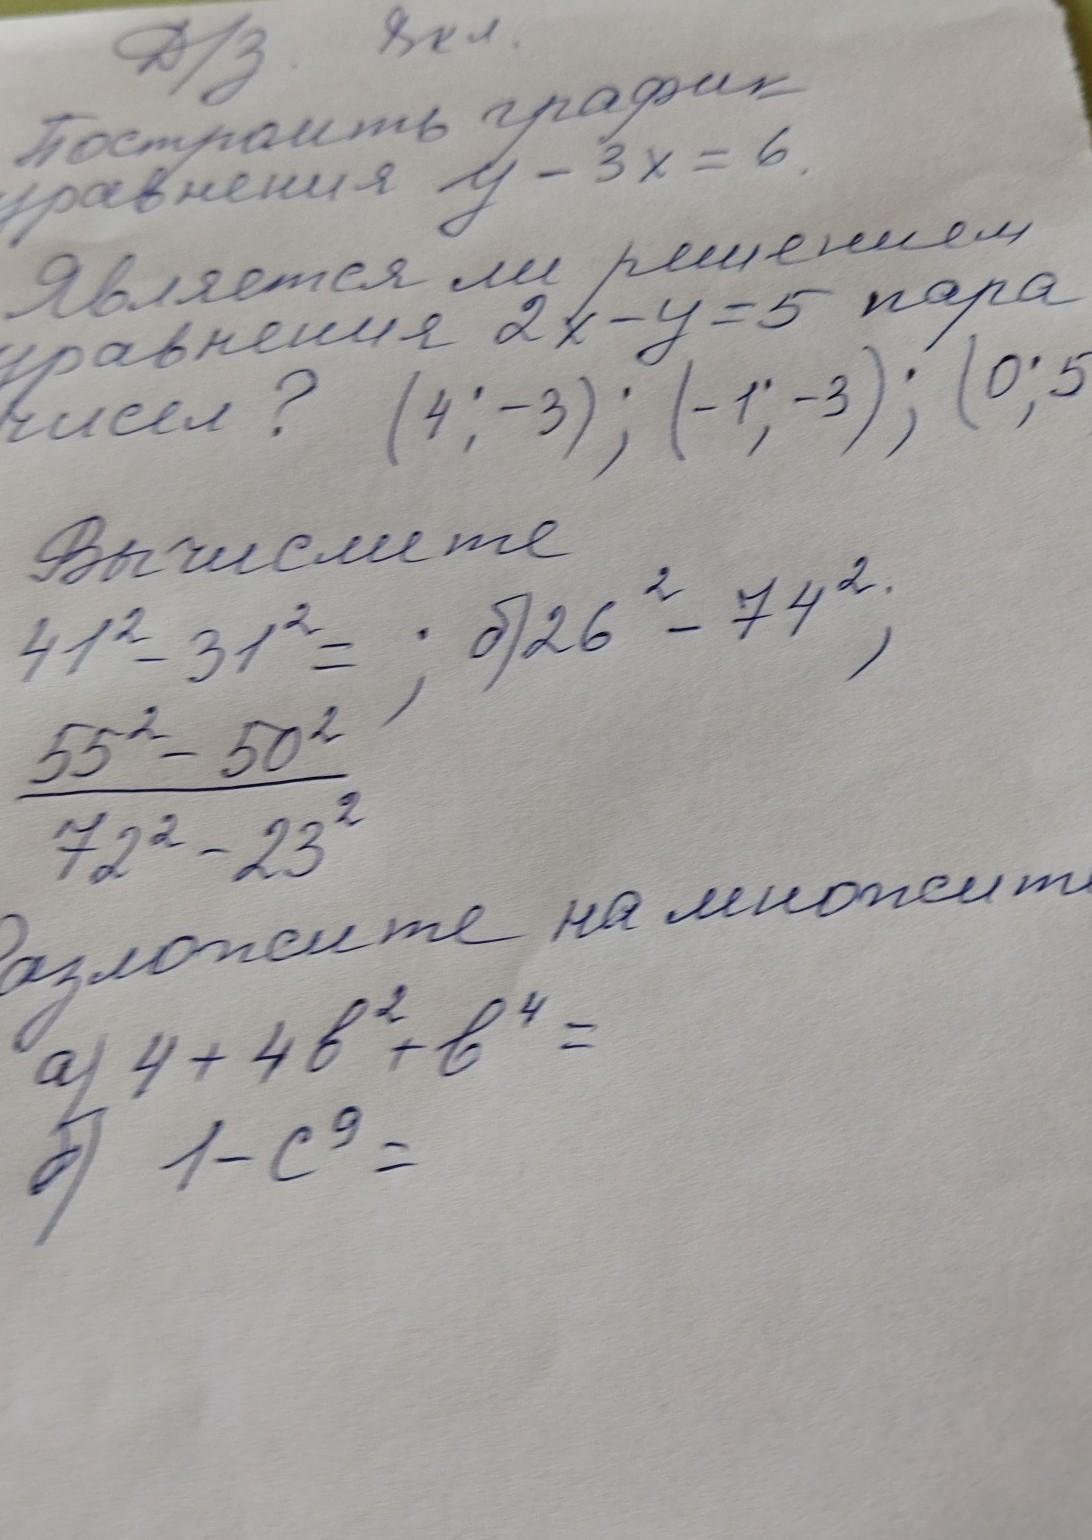 Д/З. 8кл.
Построить график
уравнения y - 3x = 6.
Является ли решением
уравнения 2x - y = 5 пара
чисел? (4; -3); (-1; -3); (0; 5
Вычислите
41² - 31² = ; б) 26² - 74²;
55² - 50²
72² - 23²
Разложите на множите
а) 4 + 4b² + b⁴ =
б) 1 - c⁹ =